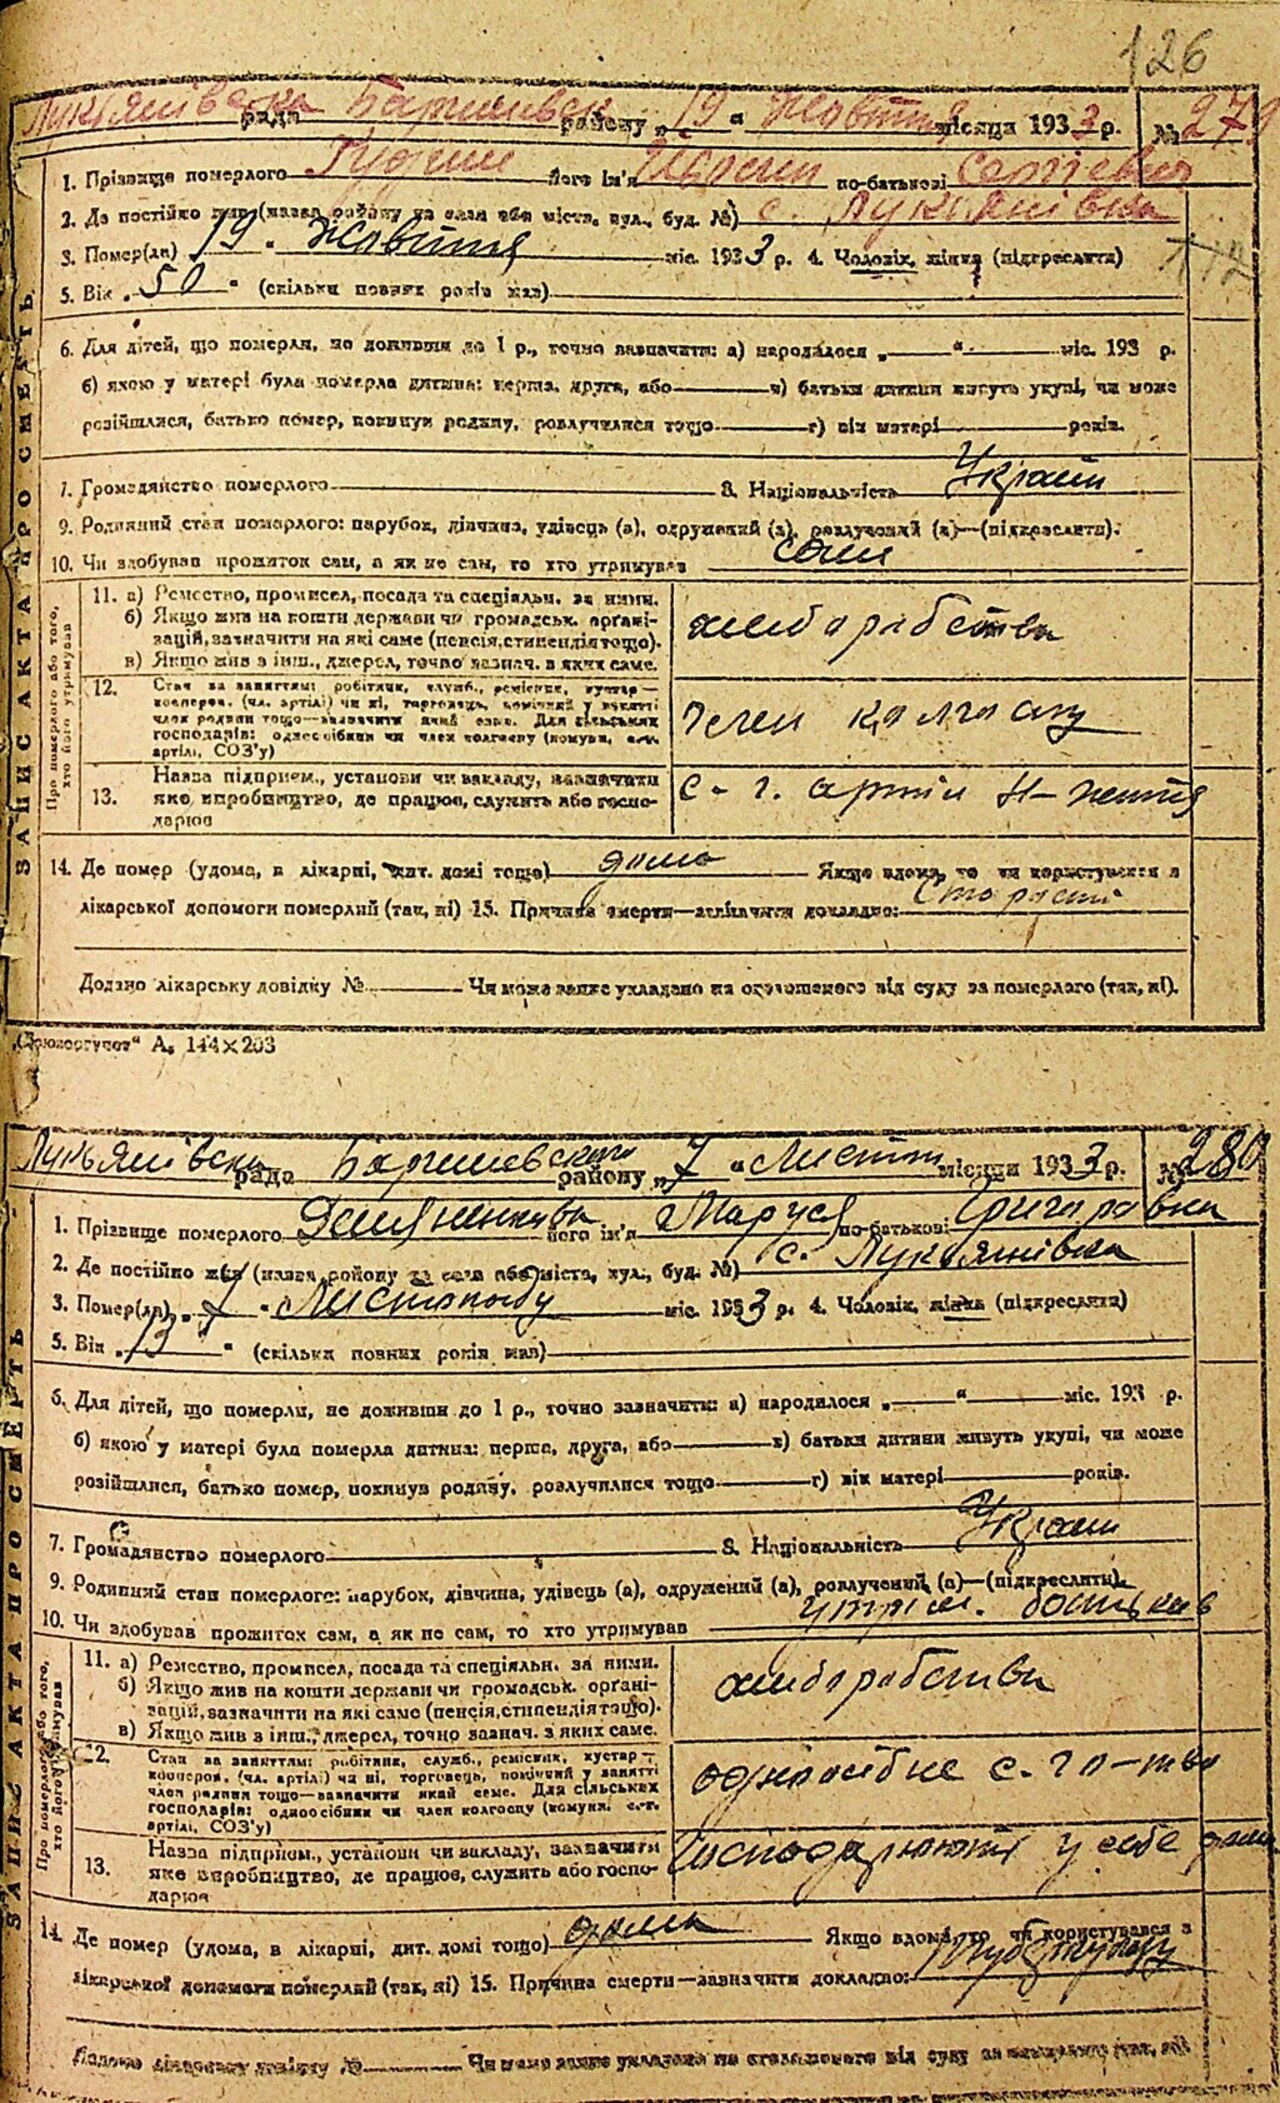 126
Лукьянівська рада Баришівськ району „19“ Жовтня місяця 1933 р. № 279
1. Прізвище померлого його ім'я по-батькові
2. Де постійно жив (назва району та села або міста, вул., буд. №) с. Лукьянівка
3. Помер(ла) „19“ Жовтня міс. 1933 р. 4. Чоловік, жінка (підкреслити)
5. Вік „50“ (скільки повних років мав)
6. Для дітей, що померли, не доживши до 1 р., точно зазначити: а) народилося „ “ міс. 193 р.
б) якою у матері була померла дитина: перша, друга, або в) батьки дитини живуть укупі, чи може
розійшлися, батько помер, покинув родину, розлучилися тощо г) вік матері років.
7. Громадянство померлого 8. Національність Украін
9. Родинний стан померлого: парубок, дівчина, удівець (а), одружений (а), розлучений (а)—(підкреслити).
10. Чи здобував прожиток сам, а як не сам, то хто утримував сам
ЗАПИС АКТА ПРО СМЕРТЬ
Про померлого або того, хто його утримував
11. а) Ремество, промисел, посада та спеціяльн. за ними.
б) Якщо жив на кошти держави чи громадськ. орґані-
зацій, зазначити на які саме (пенсія, стипендія тощо).
в) Якщо жив з інш., джерел, точно зазнач. з яких саме.
хліборобство
12. Стан за заняттям: робітник, служб., ремісник, кустар—
кооперов. (чл. артілі) чи ні, торговець, помічний у занятті
член родини тощо—зазначити який саме. Для сільських
господарів: одноосібник чи член колгоспу (комуни, с.-г.
артілі, СОЗ'у)
член колгоспу
13. Назва підприєм., установи чи закладу, зазначити
яке виробництво, де працює, служить або госпо-
дарює
с-г. артіль Н-життя
14. Де помер (удома, в лікарні, дит. домі тощо) дома Якщо вдома, то чи користувався з
лікарської допомоги померлий (так, ні) 15. Причина смерти—зазначити докладно: Старість
Додано лікарську довідку № Чи може запис укладено на оголошеного від суду за померлого (так, ні).
А. 144×203
Лукьянівська рада Баришевського району „7“ Листоп місяця 1933 р. № 280
1. Прізвище померлого його ім'я Маруся по-батькові Григорівна
2. Де постійно жив (назва району та села або міста, вул., буд. №) с. Лукьянівка
3. Помер(ла) „7“ Листопаду міс. 1933 р. 4. Чоловік, жінка (підкреслити)
5. Вік „13“ (скільки повних років мав)
6. Для дітей, що померли, не доживши до 1 р., точно зазначити: а) народилося „ “ міс. 193 р.
б) якою у матері була померла дитина: перша, друга, або в) батьки дитини живуть укупі, чи може
розійшлися, батько помер, покинув родину, розлучилися тощо г) вік матері років.
7. Громадянство померлого 8. Національність Украін
9. Родинний стан померлого: парубок, дівчина, удівець (а), одружений (а), розлучений (а)—(підкреслити).
10. Чи здобував прожиток сам, а як не сам, то хто утримував утрим. батьків
ЗАПИС АКТА ПРО СМЕРТЬ
Про померлого або того, хто його утримував
11. а) Ремество, промисел, посада та спеціяльн. за ними.
б) Якщо жив на кошти держави чи громадськ. орґані-
зацій, зазначити на які само (пенсія, стипендія тощо).
в) Якщо жив з інш., джерел, точно зазнач. з яких саме.
хліборобство
12. Стан за заняттям: робітник, служб., ремісник, кустар—
кооперов. (чл. артілі) чи ні, торговець, помічний у занятті
член родини тощо—зазначити який саме. Для сільських
господарів: одноосібник чи член колгоспу (комуни, с.-г.
артілі, СОЗ'у)
одноосібне с. го-тво
13. Назва підприєм., установи чи закладу, зазначити
яке виробництво, де працює, служить або госпо-
дарює
Господарюють у себе дома
14. Де помер (удома, в лікарні, дит. домі тощо) дома Якщо вдома, то чи користувався з
лікарської допомоги померлий (так, ні) 15. Причина смерти—зазначити докладно:
Додано лікарську довідку № Чи може запис укладено на оголошеного від суду за померлого (так, ні)